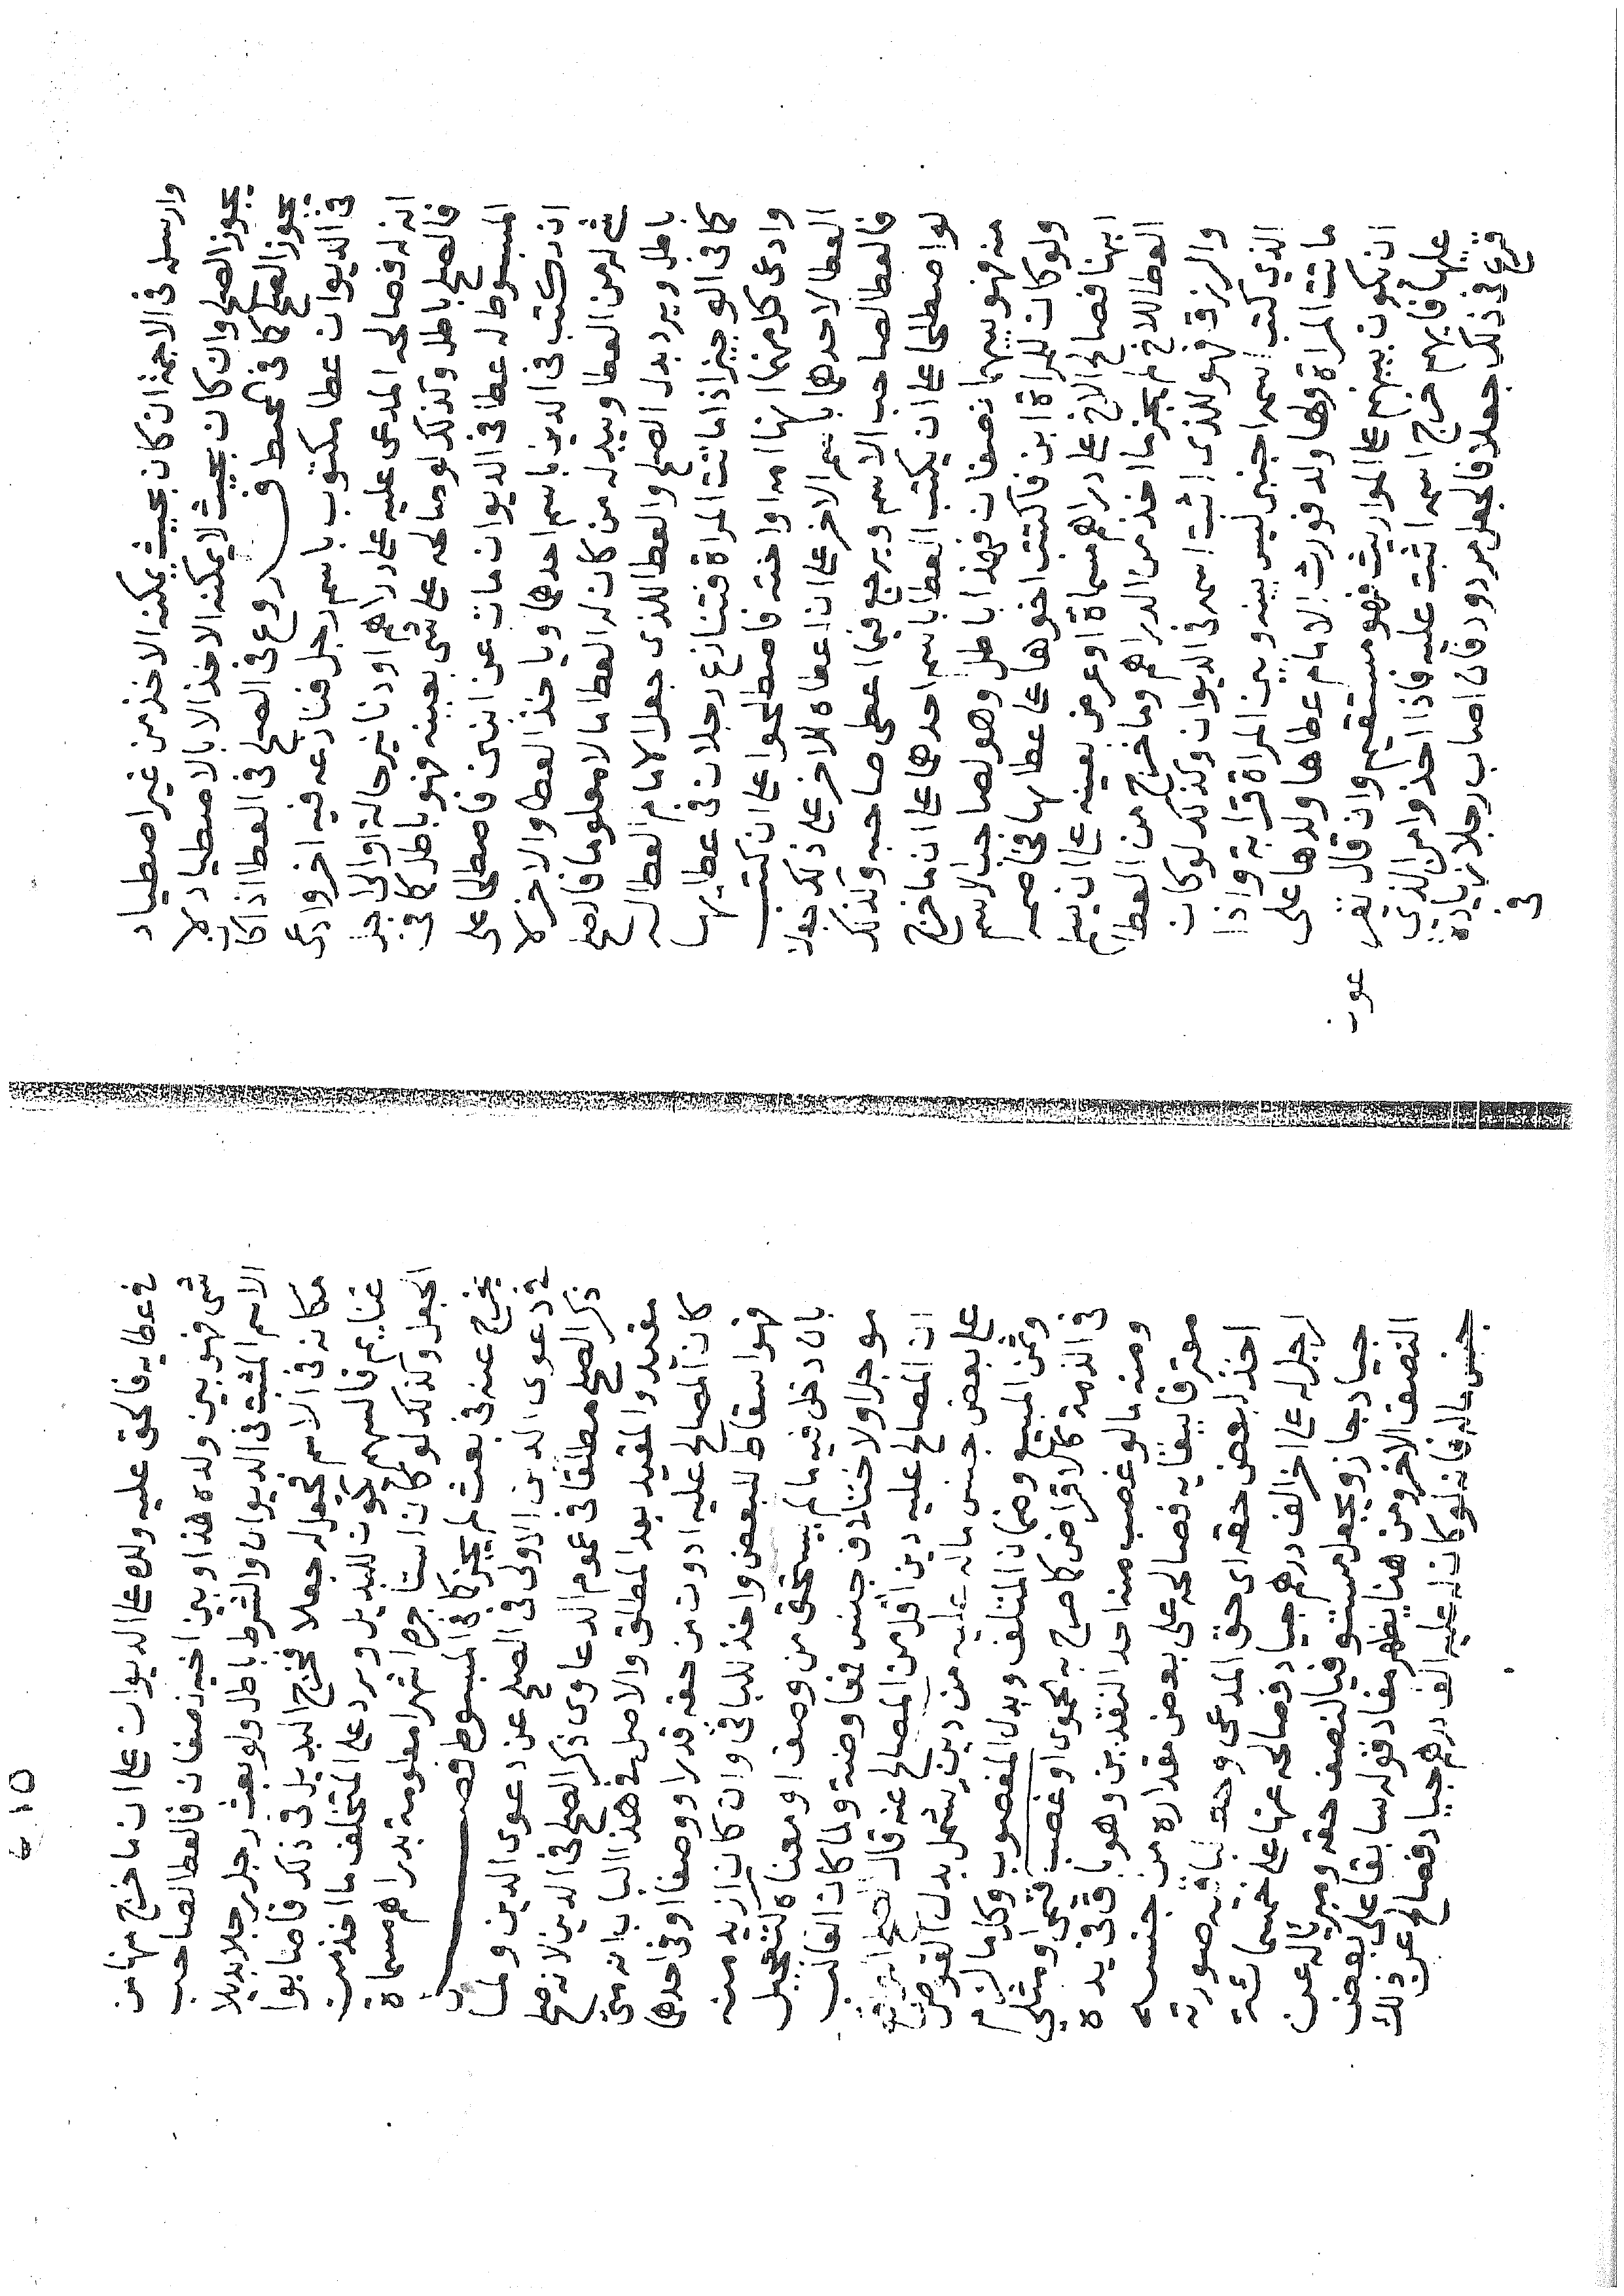 وارسله فى الاجمة ان كان بحيث يمكنه الاخذ من غير اصطياد
يجوز الصلح وان كان بحيث لا يمكنه الاخذ الا بالاصطياد لا
يجوز الصلح كما فى المحيط فـــروع فى الصلح فى العطا اذا كان
فى الديوان عطا مكتوب باسم رجل فنازعه فيه اخر وادعى
انه له فصالحه المدعى عليه على دراهم او دنانير حالة او الى اجل
فالصلح باطل وكذلك لو صالحه على شى بعينه فهو باطل كما فى
المبسوط له عطا فى الديوان مات عن ابنين فاصطلحا على
ان يكتب فى الديوان باسم احدهما وياخذ العطا والاخر لا
شى له من العطا ويبدل له من كان له العطا مالا معلوما فالصلح
باطل ويرد بدل الصلح والعطا للذى جعل الامام العطا له
كما فى الوجيز اذا ماتت المراة فتنازع رجلان فى عطايها
وادعى كل منهما انها امه او اخته فاصطلحوا على ان كتب
العطا لاحدهما باسم الاخر على ان اعطاه الاخر على ذلك جعلا
فالعطا لصاحب الاسم ويرجع فيما اعطى صاحبه وكذلك
لو اصطلحا على ان يكتب العطا باسم احدهما على ان ما خرج
منه فهو بينهما نصفان فهذا باطل وهو لصاحب الاسم
ولو كان للمراة ابن فاكتتب اخوها على عطايها فخاصمه
ابنها فصالح الاخ على دراهم مسماة او عرض بعينه على ان يسلم
العطا للاخ لم يجز ما اخذ من الدراهم وما خرج من العطا
والرزق فهو للذى اثبت اسمه فى الديوان وكذلك لو كان
الذى كتب اسمه اجنبى ليس بينه وبين المراة قرابة واذا
ماتت المراة ولها ولد فورث الامام عطاها ولدها على
ان يكون بينهم على المواريث فهو مستقيم وان قال نفر
عليها فايهم خرج اسمه اثبت عليه فاذا اخذوا من الذى
قرع فى ذلك جعلا فالجعل مردود فان اصاب رجلا زيادة
فى
فى عطايه فالحق عليه ولده على الديوان على ان ما خرج منها من
شى فهو بين ولده هذا وبين اخيه نصفان فالعطا لصاحب
الاسم المثبت فى الديوان والشرط باطل ولو بعث رجل رجلا بديلا
مكانه فى الاسم فجعل له جعلا فخرج البديل فى ذلك فاصابوا
غنايم فالسهم يكون للبديل ويرد على المتخلف ما اخذ من
الجعل وكذلك لو كان استاجره اشهرا معلومة بدراهم مسماة
يخرج عنه فى بعث لم يجز كما فى المبسوط فصـــــــل
فى دعوى الدين الاولى فى الصلح عن دعوى الدين ولما
ذكر الصلح مطلقا فى عموم الدعاوى ذكر الصلح فى الدين لانه صلح
مقيد والمقيد بعد المطلق والاصل فى هذا الباب انه متى
كان المصالح عليه ادون من حقه قدرا ووصفا او فى احدهما
فهو اسقاط للبعض واخذ للباقى وان كان ازيد منه
بان دخل فيه ما لم يستحق من وصف او معناه لتعجيل
موجل او لاختلاف جنس فمعاوضة ولما كان الغالب
ان المصالح عليه دين اقل من المصالح عنه قال الصلح الواقع
على بعض جنس ماله عليه من دين يشمل بدل القرض
وثمن المبيع وضمان المتلف وبدل المغصوب وكل ما لزم
فى الذمة كالاقراض كما صرح به الحموى او غصب قيمى او مثلى
ومنه ما لو غصب منه احد النقدين وهو باق فى يده
مقرا ببقايه فصالحه على بعض مقداره من جنسه
اخذ لبعض حقه اى حق المدعى وحط لباقيه صورته
رجل له على اخر الف درهم جياد فصالحه عنها على خمسمائة
جياد جاز ويجعل مستوفيا لنصف حقه ومبريا له عن
النصف الاخر ومن هنا يظهر مفاد قوله سابقا على بعض
جنس ماله فانه لو كان له عليه الف درهم جياد فصالح عن ذلك